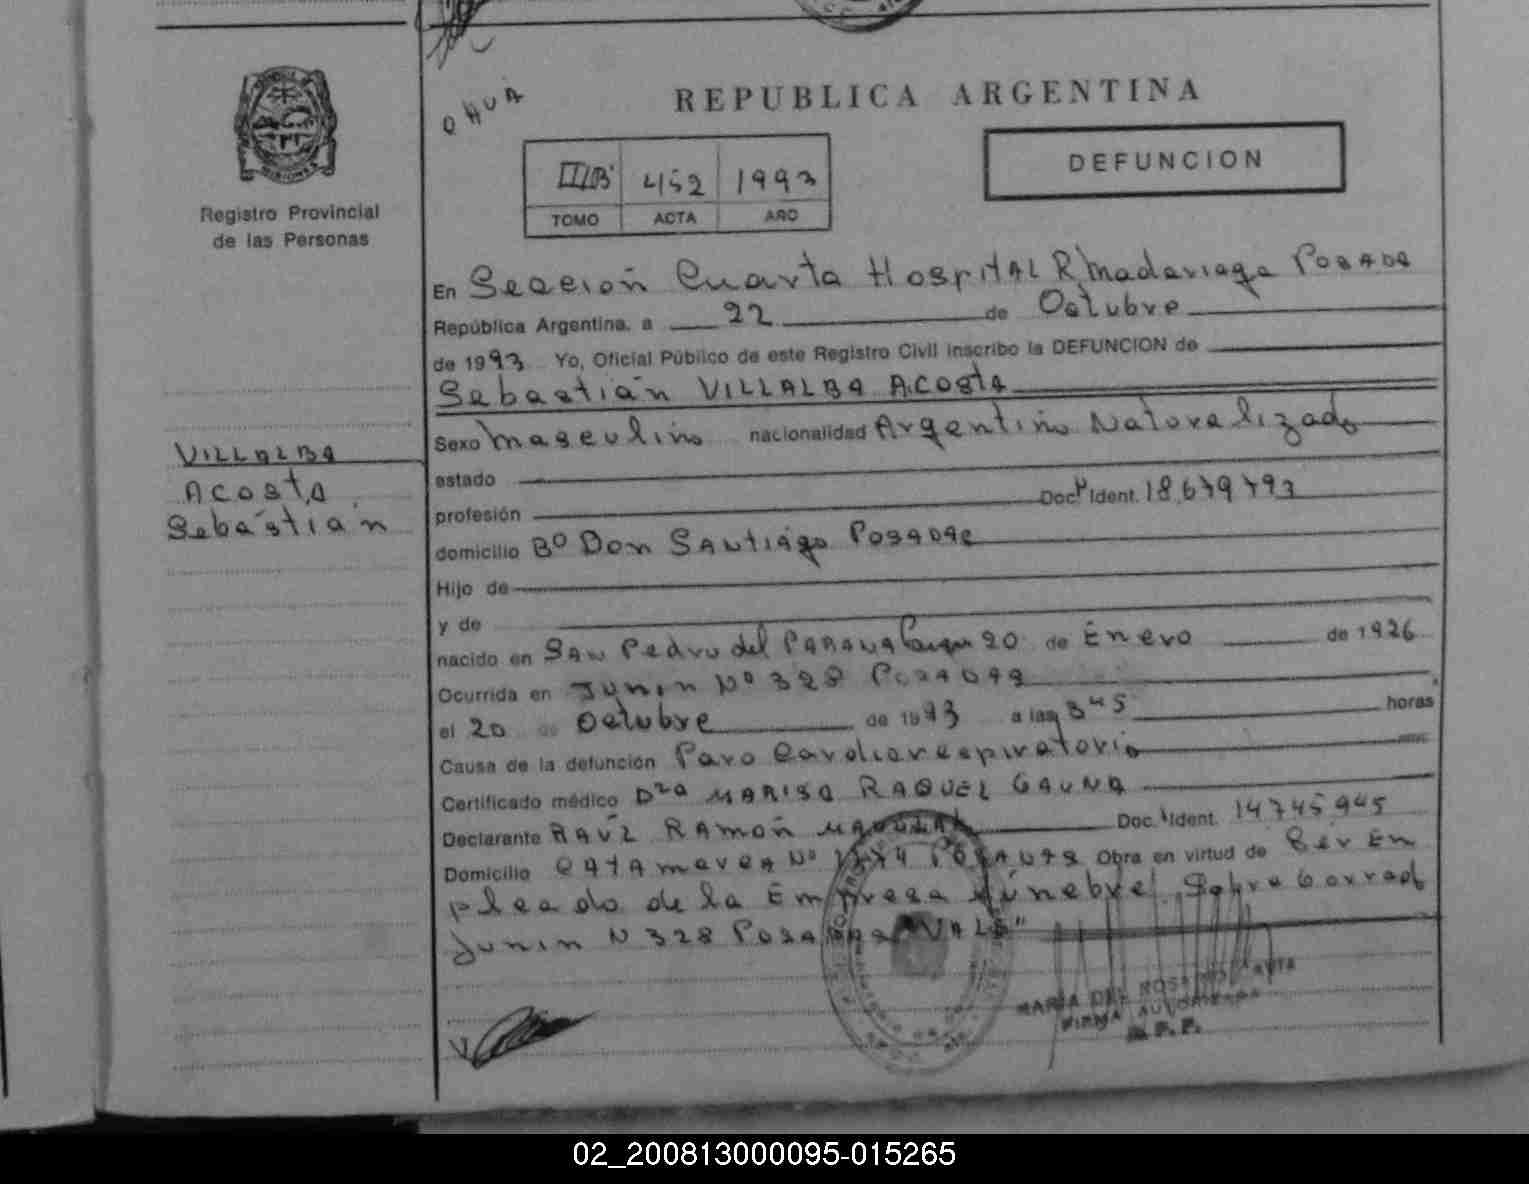 REPUBLICA ARGENTINA
DEFUNCION
452 1993
TOMO ACTA AÑO
Registro Provincial
de las Personas
En Sección Cuarta Hospital R Madariaga Posadas
República Argentina, a 22 de Octubre
de 1993 Yo, Oficial Público de este Registro Civil inscribo la DEFUNCION de
Sebastián VILLALBA ACOSTA
Sexo Masculino nacionalidad Argentino Naturalizado
VILLALBA
ACOSTA
Sebastián
estado
profesión Doc. Ident. 18.679.793
domicilio Bº Don Santiago Posadas
Hijo de
y de
nacido en San Pedro del Paraná 20 de Enero de 1926
Ocurrida en Junin Nº 328 Posadas
el 20 de Octubre de 1993 a las 345 horas
Causa de la defunción Paro Cardiorespiratorio
Certificado médico Dra MARISA RAQUEL GAUNA
Declarante RAÚL RAMÓN Doc. Ident. 14745945
Domicilio Catamarca Nº Posadas Obra en virtud de Ser Em
pleado de la Empresa fúnebre Sobre borrado
Junin N 328 Posadas "VALE"
MARIA DEL
FIRMA AUTORIZADA
R.P.P.
02_200813000095-015265